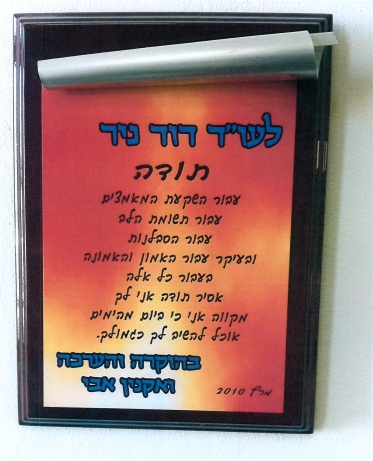 לעו"ד דוד ניר
תודה
עבור השקעת המאמצים
עבור תשומת הלב
עבור הסבלנות
ובעיקר עבור האמון והאמונה
בעבור כל אלה
אסיר תודה אני לך
מקווה אני כי ביום מהימים
אוכל להשיב לך כגמולך.
בהוקרה והערכה
ואקנין אבי
מרץ 2010